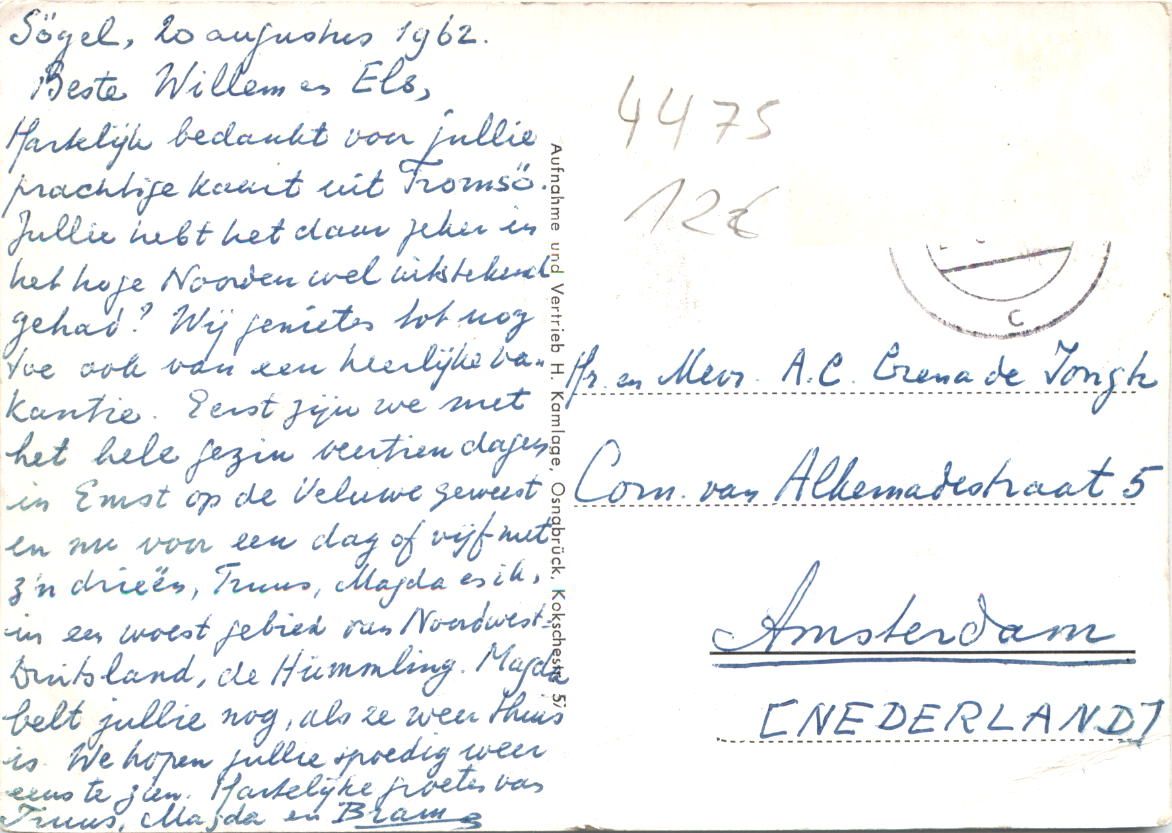 Sögel, 20 augustus 1962.
Beste Willem en Els,
Hartelijk bedankt voor jullie
prachtige kaart uit Tromsö.
Jullie hebt het daar zeker in
het hoge Noorden wel uitstekend
gehad? Wij genieten tot nog
toe ook van een heerlijke va-
kantie. Eerst zijn we met
het hele gezin veertien dagen
in Emst op de Veluwe geweest
en nu voor een dag of vijf met
z'n drieën, Truus, Magda en ik,
in een woest gebied van Noordwest-
Duitsland, de Hümmling. Magda
belt jullie nog, als ze weer thuis
is. We hopen jullie spoedig weer
eens te zien. Hartelijke groeten van
Truus, Magda en Bram
Aufnahme und Vertrieb H. Kamlage, Osnabrück, Kokschestr. 57
4475
12
c
Hr. en Mevr. A.C. Crena de Iongh
Corn. van Alkemadestraat 5
Amsterdam
[NEDERLAND]